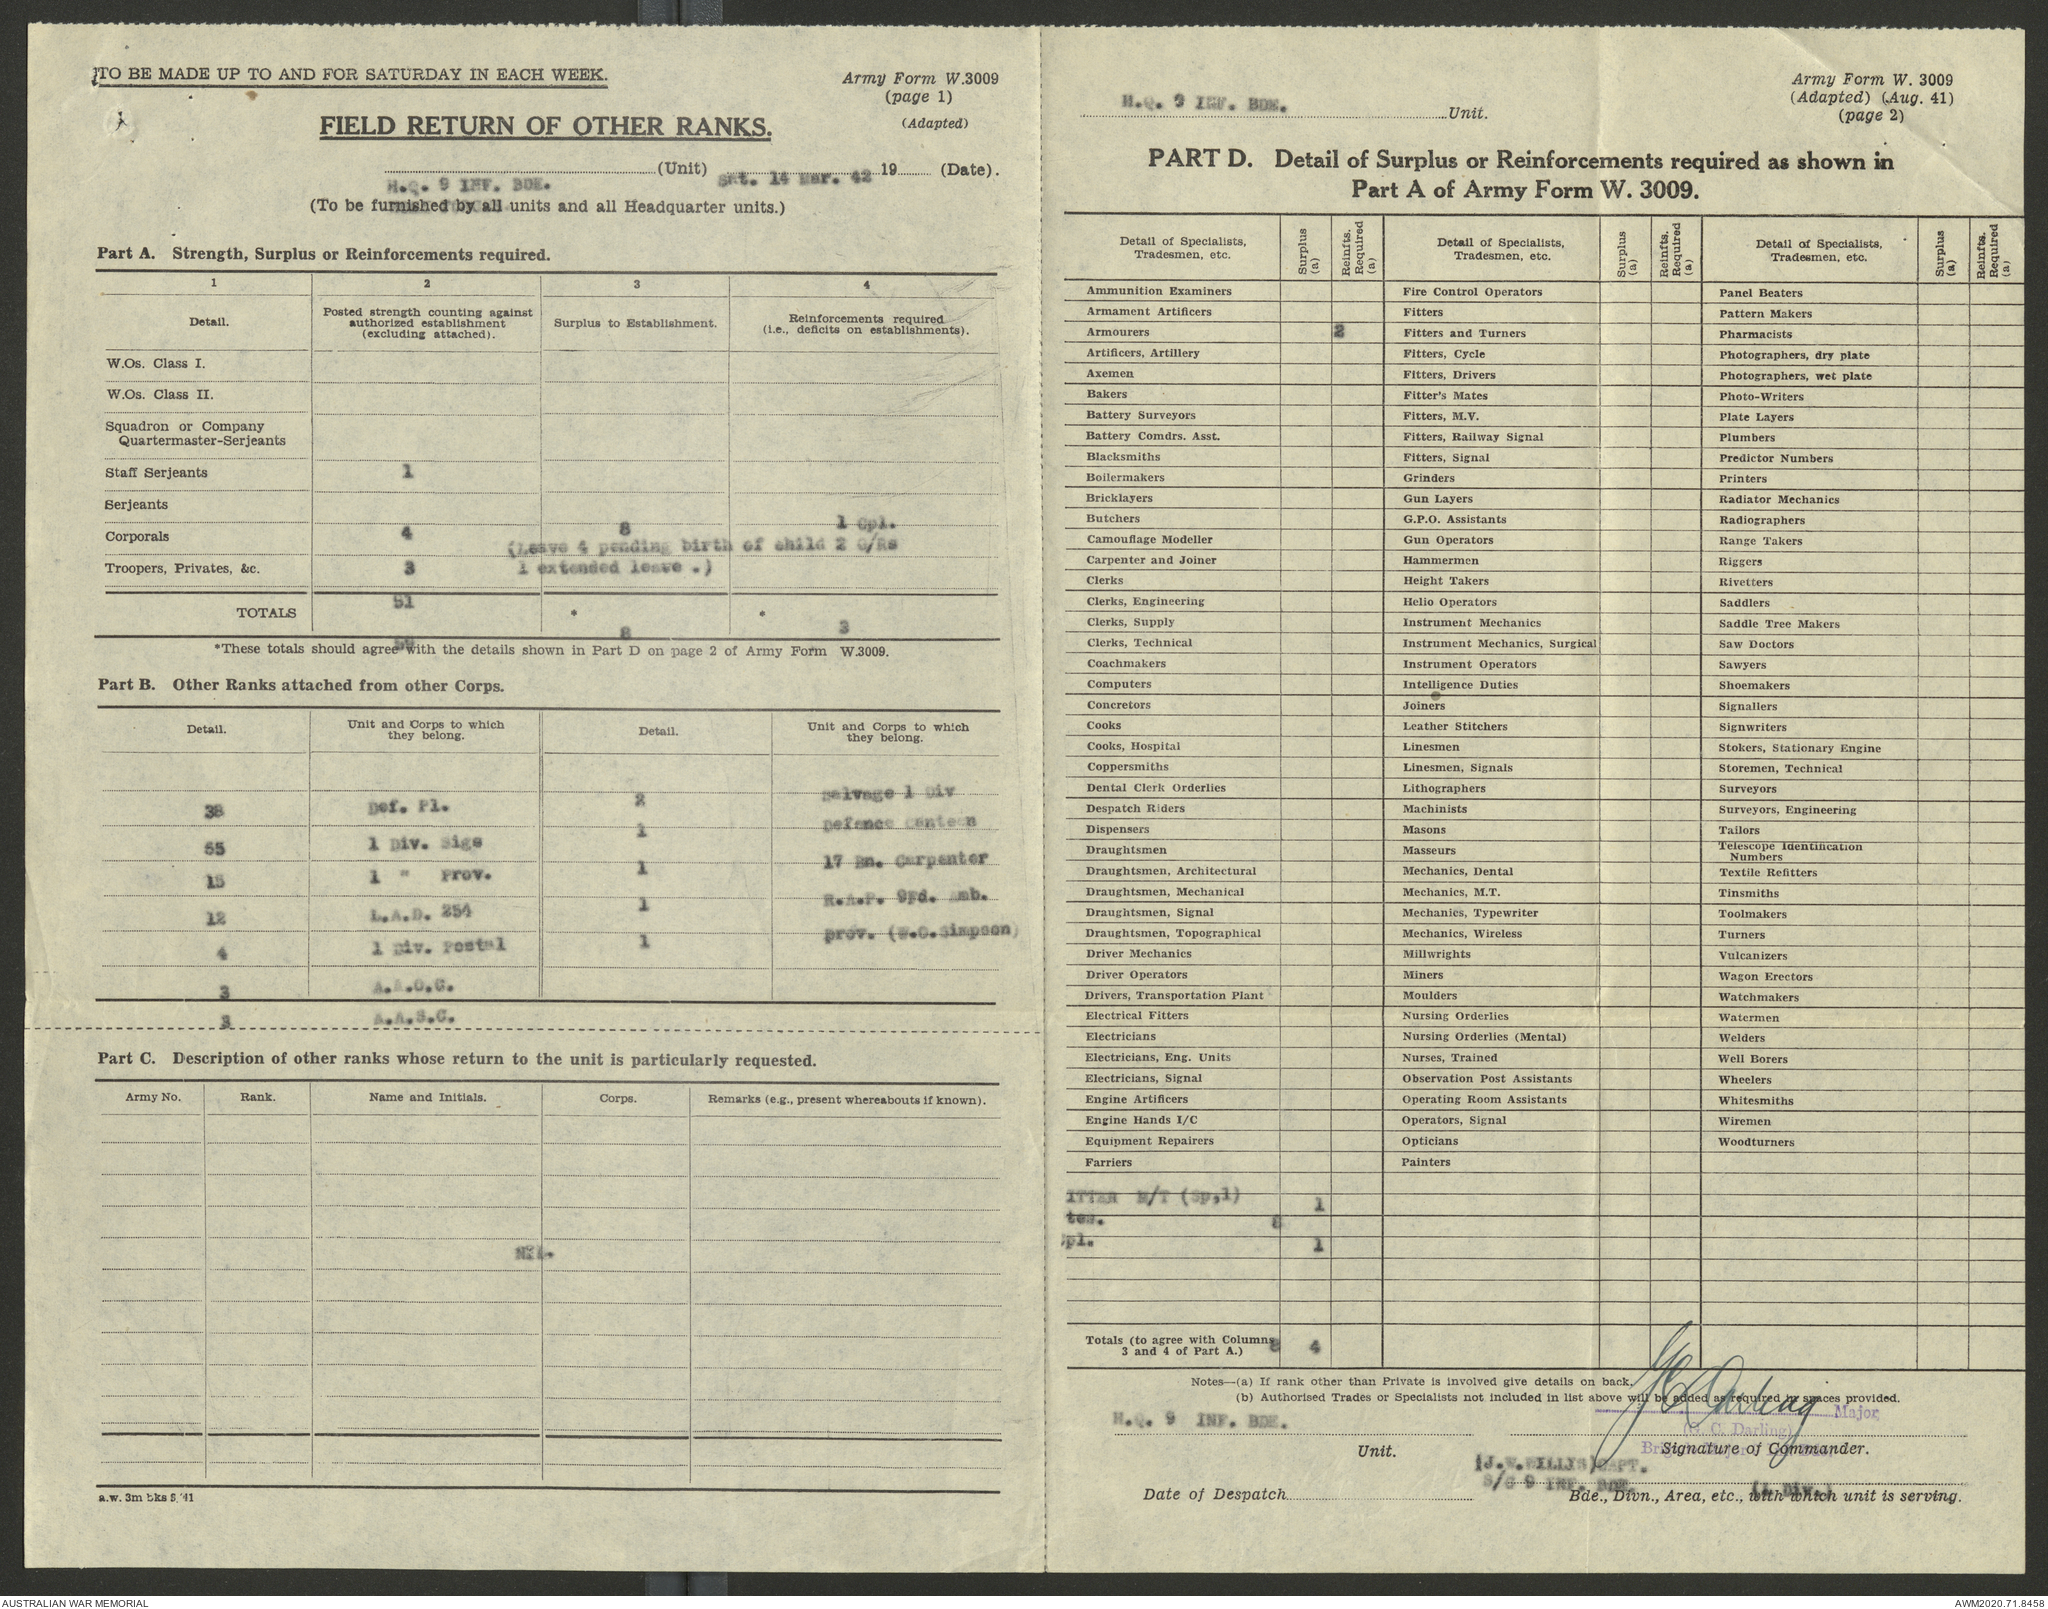 TO BE MADE UP TO AND FOR SATURDAY IN EACH WEEK.
Army Form W.3009
(page 1)
(Adapted)
FIELD RETURN OF OTHER RANKS.
(Unit) Sat. 14 Mar. 42 19 (Date).
H.Q. 9 INF. BDE.
(To be furnished by all units and all Headquarter units.)
Part A. Strength, Surplus or Reinforcements required.
1 2 3 4
Detail. Posted strength counting against authorized establishment (excluding attached). Surplus to Establishment. Reinforcements required (i.e., deficits on establishments).
W.Os. Class I.
W.Os. Class II.
Squadron or Company
Quartermaster-Serjeants
Staff Serjeants 1
Serjeants
Corporals 4 8 1 Cpl.
(Leave 4 pending birth of child 2 O/Rs
Troopers, Privates, &c. 3 1 extended leave .)
51
TOTALS * *
8 3
*These totals should agree with the details shown in Part D on page 2 of Army Form W.3009.
Part B. Other Ranks attached from other Corps.
Detail. Unit and Corps to which they belong. Detail. Unit and Corps to which they belong.
38 Def. Pl. 2 Salvage 1 Div
55 1 Div. Sigs 1 Defence Canteen
15 1 " Prov. 1 17 Bn. Carpenter
12 L.A.D. 254 1 R.A.P. 9Fd. Amb.
4 1 Div. Postal 1 prov. (W.O.Simpson)
3 A.A.O.C.
3 A.A.S.C.
Part C. Description of other ranks whose return to the unit is particularly requested.
Army No. Rank. Name and Initials. Corps. Remarks (e.g., present whereabouts if known).
NIL.
a.w. 3m bks 8/41
H.Q. 9 INF. BDE. Unit.
Army Form W. 3009
(Adapted) (Aug. 41)
(page 2)
PART D. Detail of Surplus or Reinforcements required as shown in
Part A of Army Form W. 3009.
Detail of Specialists, Tradesmen, etc. Surplus (a) Reinfts. Required (a) Detail of Specialists, Tradesmen, etc. Surplus (a) Reinfts. Required (a) Detail of Specialists, Tradesmen, etc. Surplus (a) Reinfts. Required (a)
Ammunition Examiners Fire Control Operators Panel Beaters
Armament Artificers Fitters Pattern Makers
Armourers 2 Fitters and Turners Pharmacists
Artificers, Artillery Fitters, Cycle Photographers, dry plate
Axemen Fitters, Drivers Photographers, wet plate
Bakers Fitter's Mates Photo-Writers
Battery Surveyors Fitters, M.V. Plate Layers
Battery Comdrs. Asst. Fitters, Railway Signal Plumbers
Blacksmiths Fitters, Signal Predictor Numbers
Boilermakers Grinders Printers
Bricklayers Gun Layers Radiator Mechanics
Butchers G.P.O. Assistants Radiographers
Camouflage Modeller Gun Operators Range Takers
Carpenter and Joiner Hammermen Riggers
Clerks Height Takers Rivetters
Clerks, Engineering Helio Operators Saddlers
Clerks, Supply Instrument Mechanics Saddle Tree Makers
Clerks, Technical Instrument Mechanics, Surgical Saw Doctors
Coachmakers Instrument Operators Sawyers
Computers Intelligence Duties Shoemakers
Concretors Joiners Signallers
Cooks Leather Stitchers Signwriters
Cooks, Hospital Linesmen Stokers, Stationary Engine
Coppersmiths Linesmen, Signals Storemen, Technical
Dental Clerk Orderlies Lithographers Surveyors
Despatch Riders Machinists Surveyors, Engineering
Dispensers Masons Tailors
Draughtsmen Masseurs Telescope Identification Numbers
Draughtsmen, Architectural Mechanics, Dental Textile Refitters
Draughtsmen, Mechanical Mechanics, M.T. Tinsmiths
Draughtsmen, Signal Mechanics, Typewriter Toolmakers
Draughtsmen, Topographical Mechanics, Wireless Turners
Driver Mechanics Millwrights Vulcanizers
Driver Operators Miners Wagon Erectors
Drivers, Transportation Plant Moulders Watchmakers
Electrical Fitters Nursing Orderlies Watermen
Electricians Nursing Orderlies (Mental) Welders
Electricians, Eng. Units Nurses, Trained Well Borers
Electricians, Signal Observation Post Assistants Wheelers
Engine Artificers Operating Room Assistants Whitesmiths
Engine Hands I/C Operators, Signal Wiremen
Equipment Repairers Opticians Woodturners
Farriers Painters
ITTER M/T (Sp,1) 1
tes. 8
pl. 1
Totals (to agree with Columns 3 and 4 of Part A.) 8 4
Notes—(a) If rank other than Private is involved give details on back.
(b) Authorised Trades or Specialists not included in list above will be added as required in spaces provided.
H.Q. 9 INF. BDE.
Unit.
G C Darling Major
(G. C. Darling)
Signature of Commander.
(J.W.WILLYS)CAPT.
S/C 9 INF. BDE. (1 Div.)
Date of Despatch
Bde., Divn., Area, etc., with which unit is serving.
AUSTRALIAN WAR MEMORIAL
AWM2020.71.8458